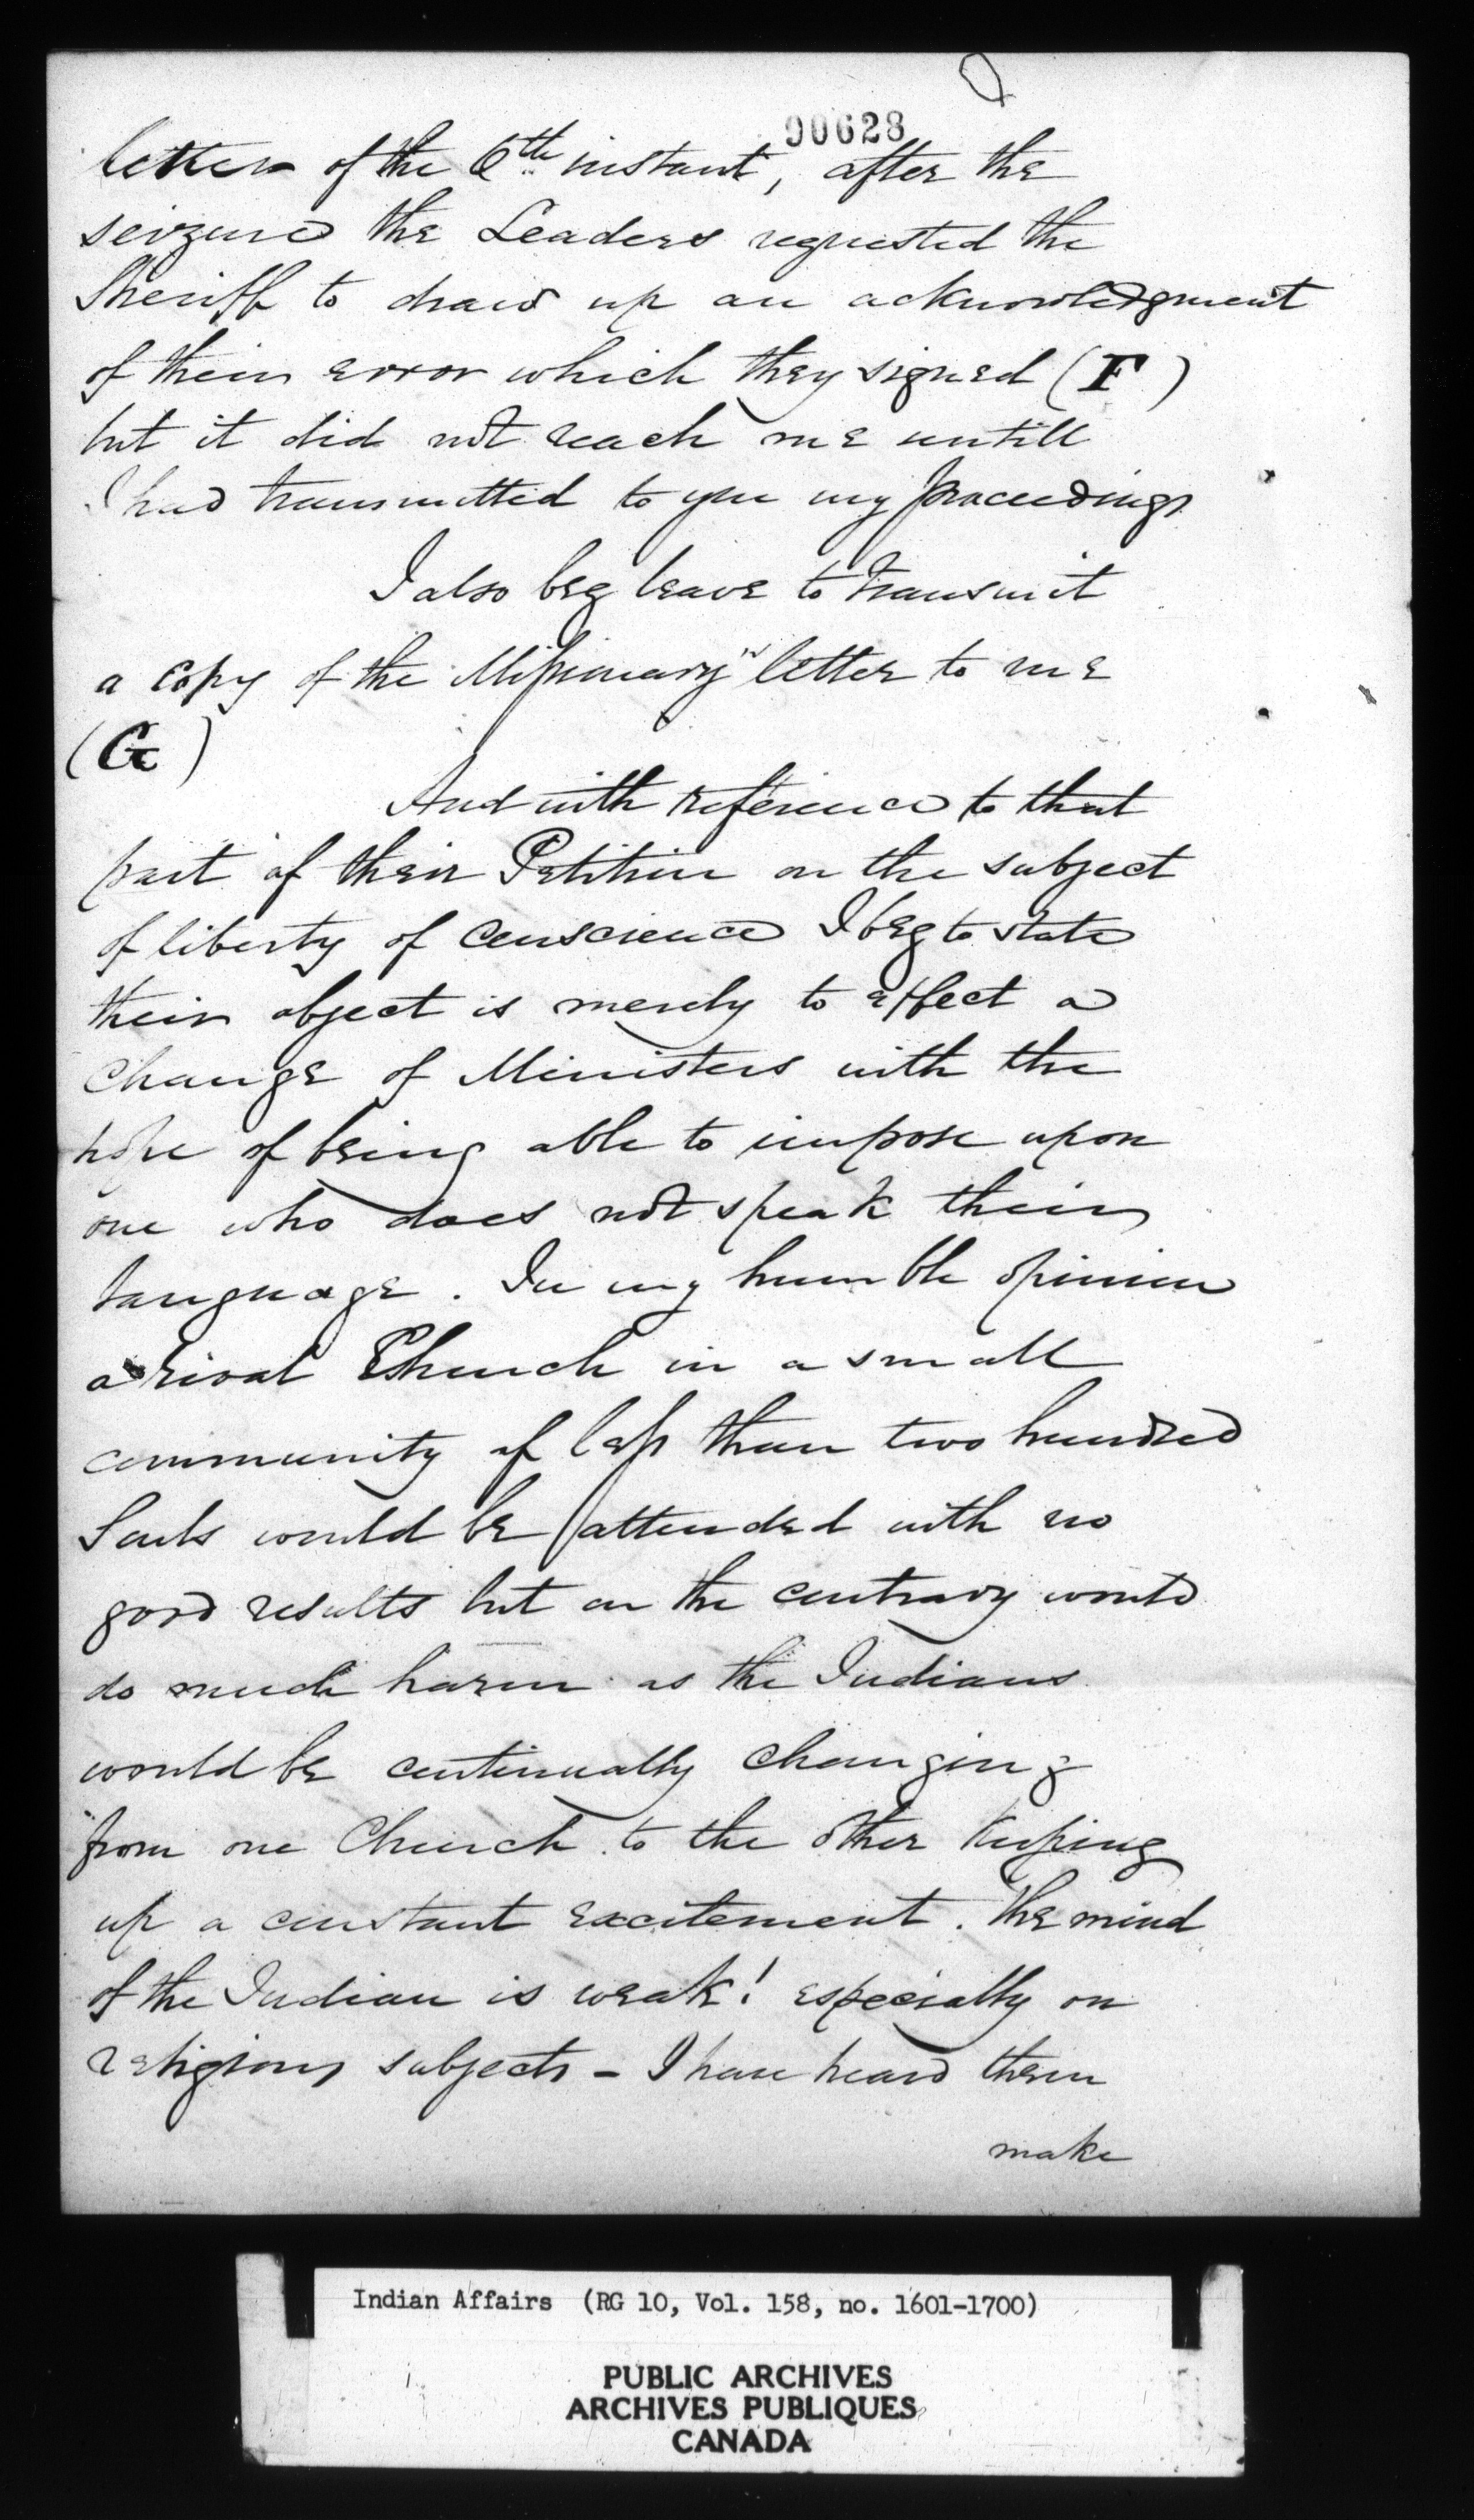 90628
letter of the 6th instant, after the
seizure the Leaders requested the
Sheriff to draw up an acknowledgment
of their error which they signed (F)
but it did not reach me untill
I had transmitted to you my proceedings
I also beg leave to transmit
a copy of the Missionary's letter to me
(G)
And with reference to that
part of their Petition on the subject
of liberty of conscience I beg to state
their object is merely to effect a
change of Ministers with the
hope of being able to impose upon
one who does not speak their
language. In my humble opinion
a rival Church in a small
community of less than two hundred
Souls would be attended with no
good results but on the contrary would
do much harm as the Indians
would be continually changing
from one Church to the other keeping
up a constant excitement. The mind
of the Indian is weak! especially on
religious subjects - I have heard them
make
Indian Affairs (RG 10, Vol. 158, no. 1601-1700)
PUBLIC ARCHIVES
ARCHIVES PUBLIQUES
CANADA